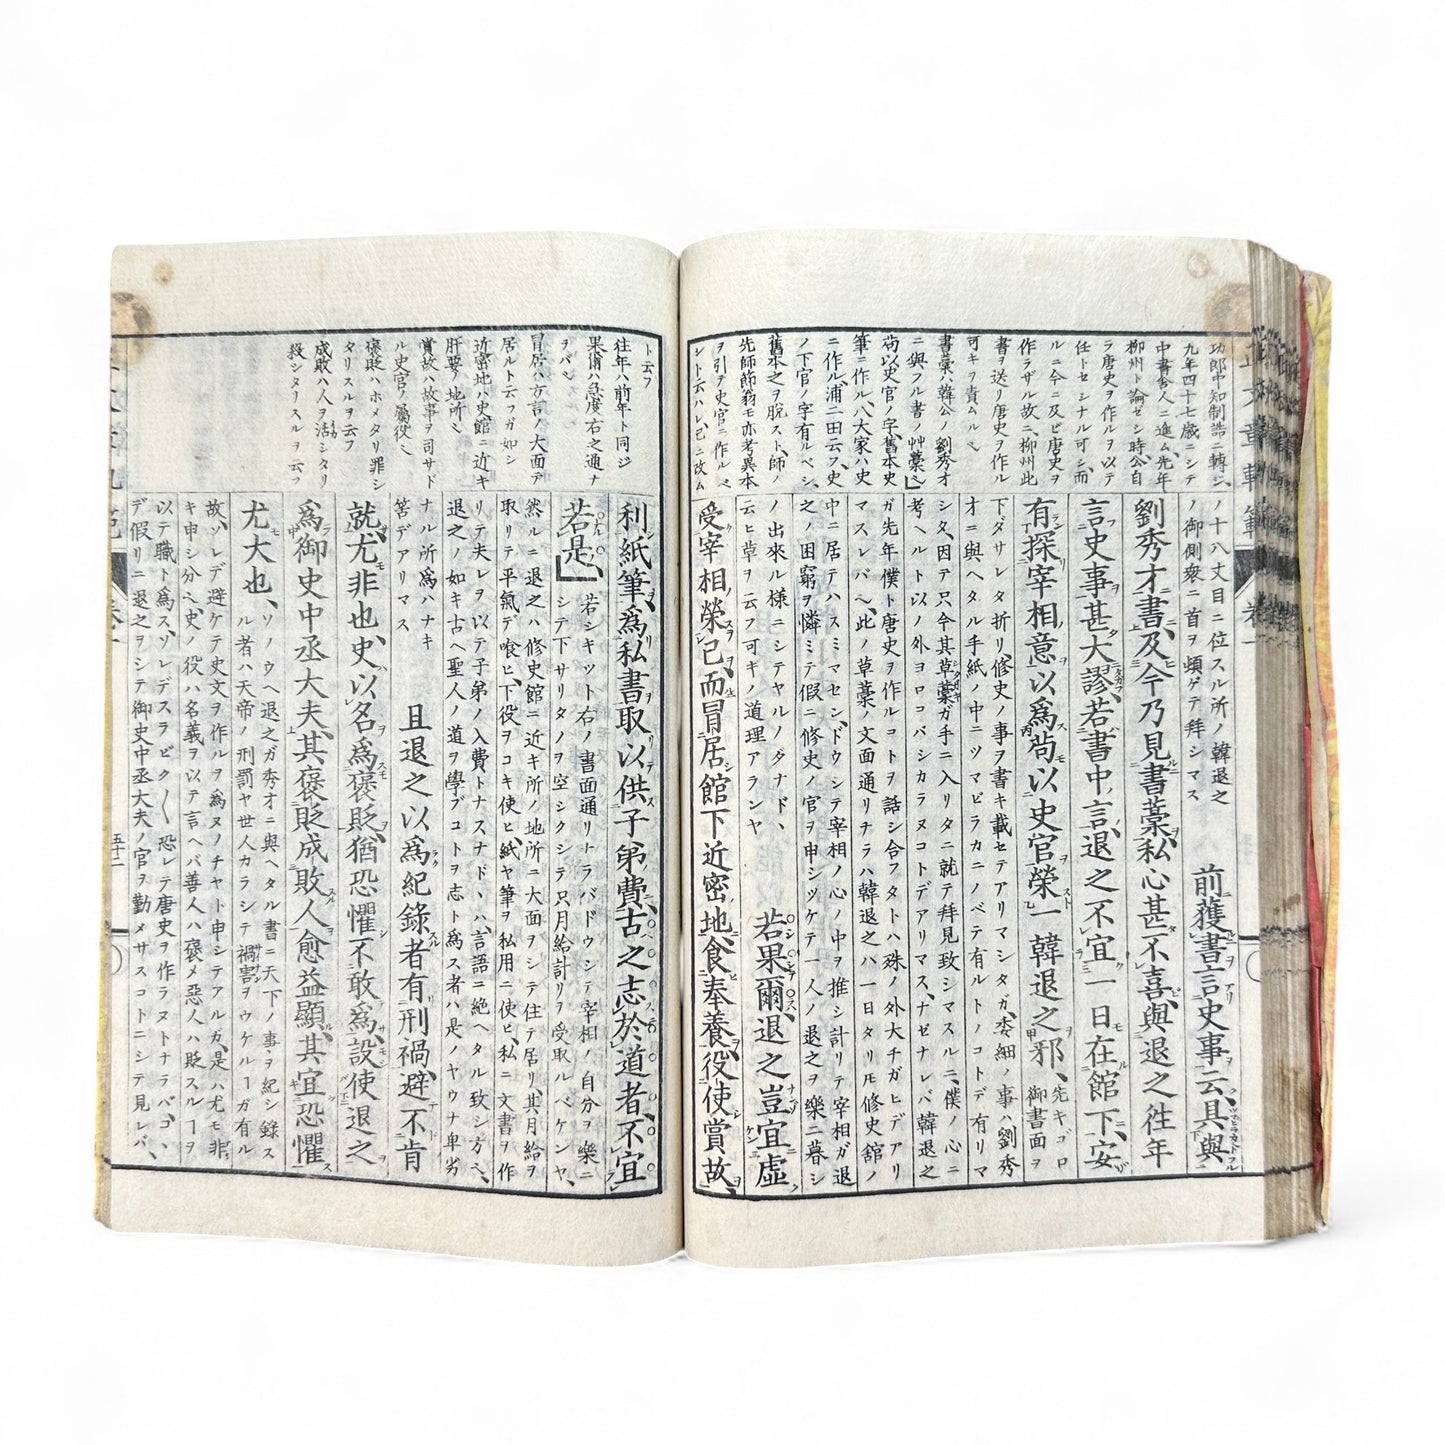 功郎中知制誥ニ轉シ、
九年四十七歲ニシテ
中書舍人ニ進ム、先年
柳州ト論ゼシ時公自
ラ唐史ヲ作ルヲ以テ
任トセシナル可シ、而
ルニ今ニ及ビ唐史ヲ
作ラザル故ニ、柳州此
書ヲ送リ唐史ヲ作ル
可キヲ責ムル
書藁ハ韓公ノ劉秀才
ニ與フル書ノ艸藁
苟以史官ノ字、舊本史
筆ニ作ル、八大家ハ史
ニ作ル、浦二田云フ、史
ノ下官ノ字有ルベシ、
舊本之ヲ脫スト、師ノ
先師節翁モ亦考異本
ヲ引テ史官ニ作ルベ
シト云ハレ、已ニ改ム
ノ十八丈目ニ位スル所ノ韓退之
ノ御側衆ニ首ヲ頓ゲテ拜シマス
前獲書言史事云、具與
劉秀才書、及今乃見書藁、私心甚不喜、與退之往年
言史事甚大謬、若書中言、退之不宜一日在館下、安
有探宰相意、以爲苟以史官榮一韓退之邪、
先キゴロ
御書面ヲ
下ダサレタ折リ、修史ノ事ヲ書キ載セテアリマシタガ、委細ノ事ハ劉秀
才ニ與ヘタル手紙ノ中ニツマビラカニノベテ有ルトノコトデ有リマ
シタ、因テ只今其草藁ガ手ニ入リタニ就テ拜見致シマスルニ、僕ノ心ニ
考ヘルト以ノ外ヨロコバシカラヌコトデアリマス、ナゼナレバ韓退之
ガ先年僕ト唐史ヲ作ルコトヲ話シ合フタトハ殊ノ外大チガヒデアリ
マスレバ、此ノ草藁ノ文面通リナラハ韓退之ハ一日タリモ修史館ノ
中ニ居テハスミマセン、ドウシテ宰相ノ心ノ中ヲ推シ計リテ宰相ガ退
之ノ困窮ヲ憐ミテ假ニ修史ノ官ヲ申シツケテ一人ノ退之ヲ樂ニ暮シ
ノ出來ル樣ニシテヤルノダナド、
云ヒ草ヲ云フ可キノ道理アランヤ
若果爾、退之豈宜虛
受宰相榮己、而冒居館下、近密地、食奉養、役使賞故、
ト云フ
往年ハ前年ト同ジ
果爾ハ急度右之通ナ
ヲバ
冒居ハ方言ノ大面デ
居ルト云フガ如シ
近密地ハ史館ニ近キ
肝要ノ地所
賞故ハ故事ヲ司サド
ル史官ノ屬役
褒貶ハホメタリ罪シ
タリスルヲ云フ
成敗ハ人ヲ活シタリ
殺シタリスルヲ云フ
利紙筆、爲私書、取以供子弟費、古之志於道者、不宜
若是、
若シキツト右ノ書面通リナラバドウシテ宰相ノ自分ヲ樂ニ
シテ下サリタノヲ空シクシテ只月給計リヲ受取ルベケンヤ、
然ルニ退之ハ修史館ニ近キ所ノ地所ニ大面ヲシテ住テ居リ其月給ヲ
取リテ平氣デ喰ヒ、下役ヲコキ使ヒ、紙ヤ筆ヲ私用ニ使ヒ、私ニ文書ヲ作
リテ夫レヲ以テ子弟ノ入費トナスナド、ハ言語ニ絕ヘタル致シ方
退之ノ如キ古ヘ聖人ノ道ヲ學ブコトヲ志ト爲ス者ハ是ノヤウナ卑劣
ナル所爲ハナキ
筈デアリマス
且退之以爲紀錄者有刑禍、避不肯
就、尤非也、史以名爲褒貶、猶恐懼不敢爲、設使退之
爲御史中丞大夫、其褒貶成敗人、愈益顯、其宜恐懼
尤大也、
ソノウヘ退之ガ秀才ニ與ヘタル書ニ天下ノ事ヲ紀シ錄ス
ル者ハ天帝ノ刑罰ヤ世人カラシテ禍害ヲウケルヿガ有ル
故、ソレデ避ケテ史文ヲ作ルヲ爲ヌノチヤト申シテアルガ、是ハ尤モ非
キ申シ分、史ノ役ハ名義ヲ以テ言ヘバ善人ハ褒メ惡人ハ貶スルヿヲ
以テ職ト爲ス、ソレデスラビク〱恐レテ唐史ヲ作ラヌトナラバ、コヽ
デ假リニ退之ヲシテ御史中丞大夫ノ官ヲ勤メサスコトニシテ見レバ、
五十二